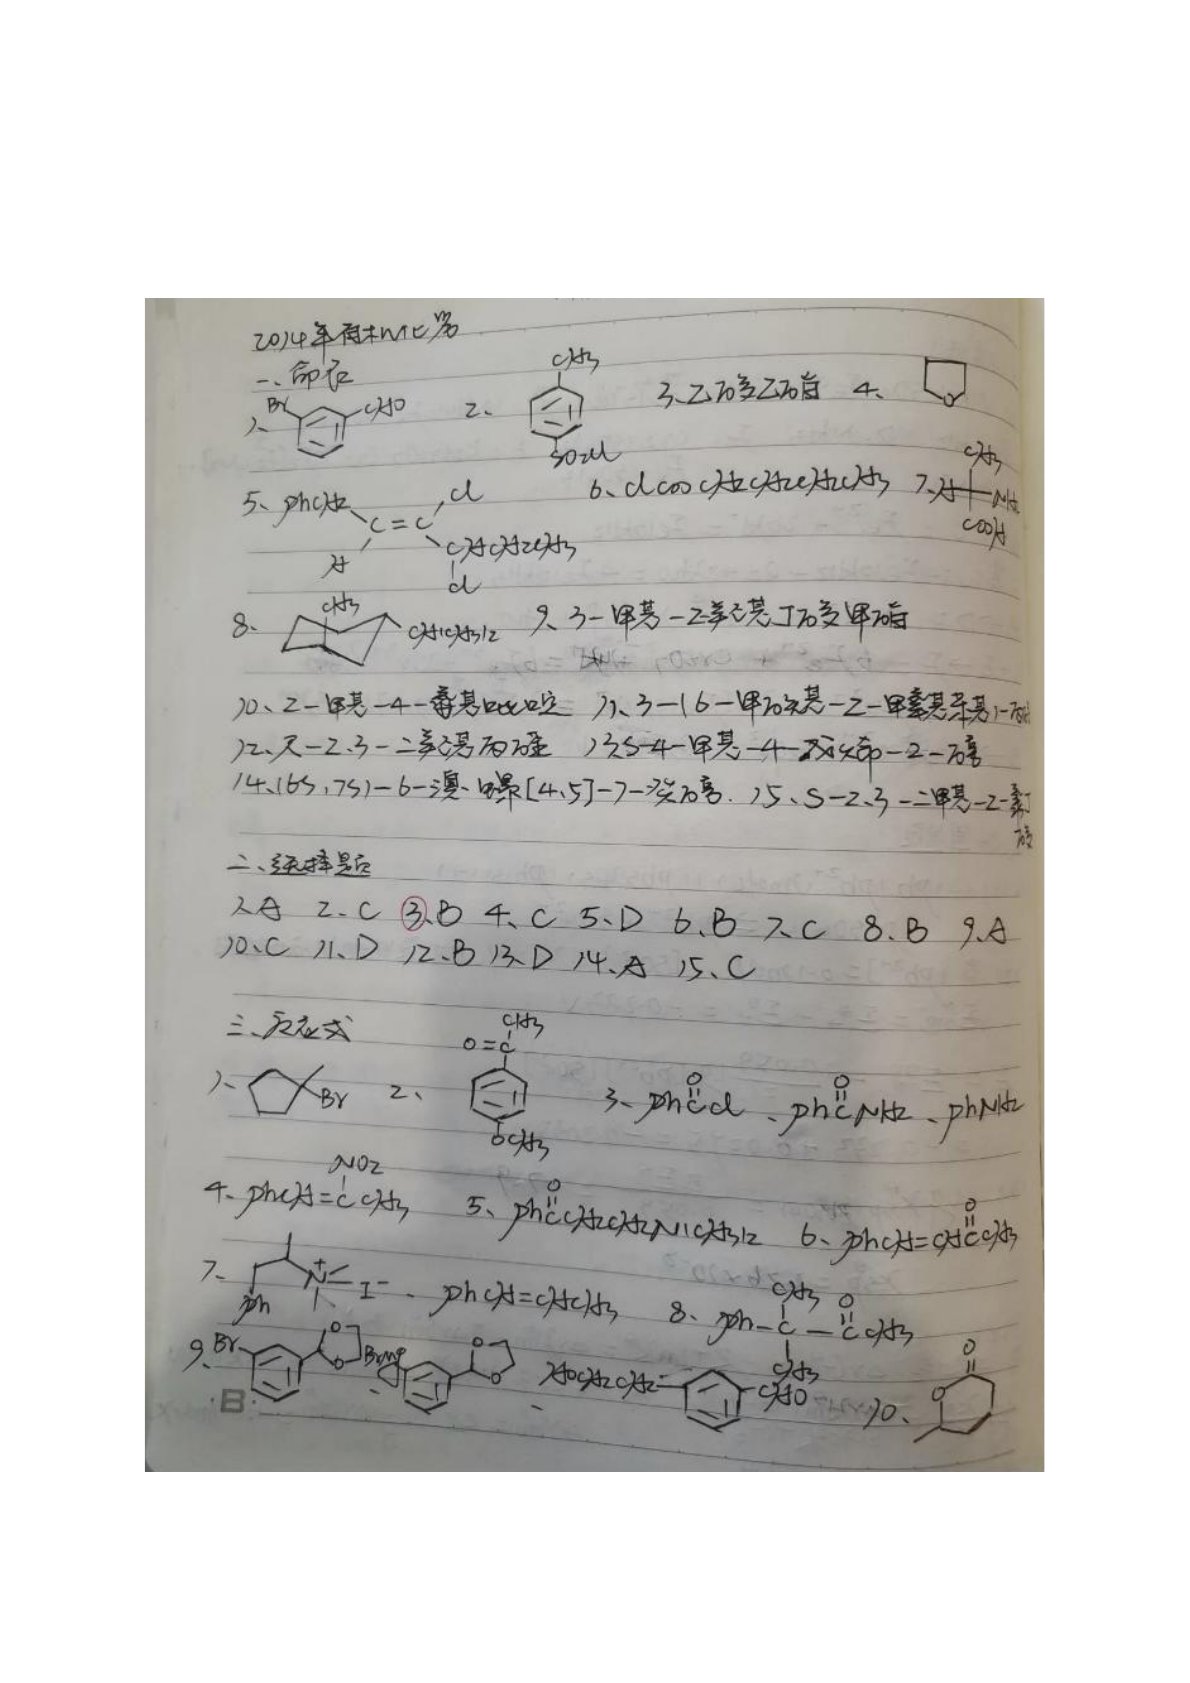 2014年有机化学
一、命名
1、Br CHO 2、CH3 SO2Cl 3、乙酸乙酯 4、O
5、PhCH2 Cl C=C H CHCH2CH3 Cl 6、ClCOCH2CH2CH2CH3 7、CH3 H NH2 COOH
8、CH3 CH(CH3)2 9、3-甲基-2-氧基丁酸甲酯
10、2-甲基-4-吡啶 11、3-(6-甲 基-2-甲氧基 基)-
12、反-2,3-二 丙 13、S-4-甲基-4- -2-酮
14、(6S,7S)-6-溴 螺[4,5]-7-癸酮. 15、S-2,3-二甲基-2-
酸
二、选择题
1、A 2、C 3、B 4、C 5、D 6、B 7、C 8、B 9、A
10、C 11、D 12、B 13、D 14、A 15、C
三、反应式
1、Br 2、O=C CH3 OCH3 3、PhCCl O 、PhCNH2 O 、PhNH2
4、PhCH=CCH3 NO2 5、PhCCH2CH2N(CH3)2 O 6、PhCH=CHCCH3 O
7、Ph N+ I- 、PhCH=CHCH3 8、Ph-C-CCH3 CH3 CH3 O
9、Br O O BrMg O O HOCH2CH2 CHO 10、O O
B